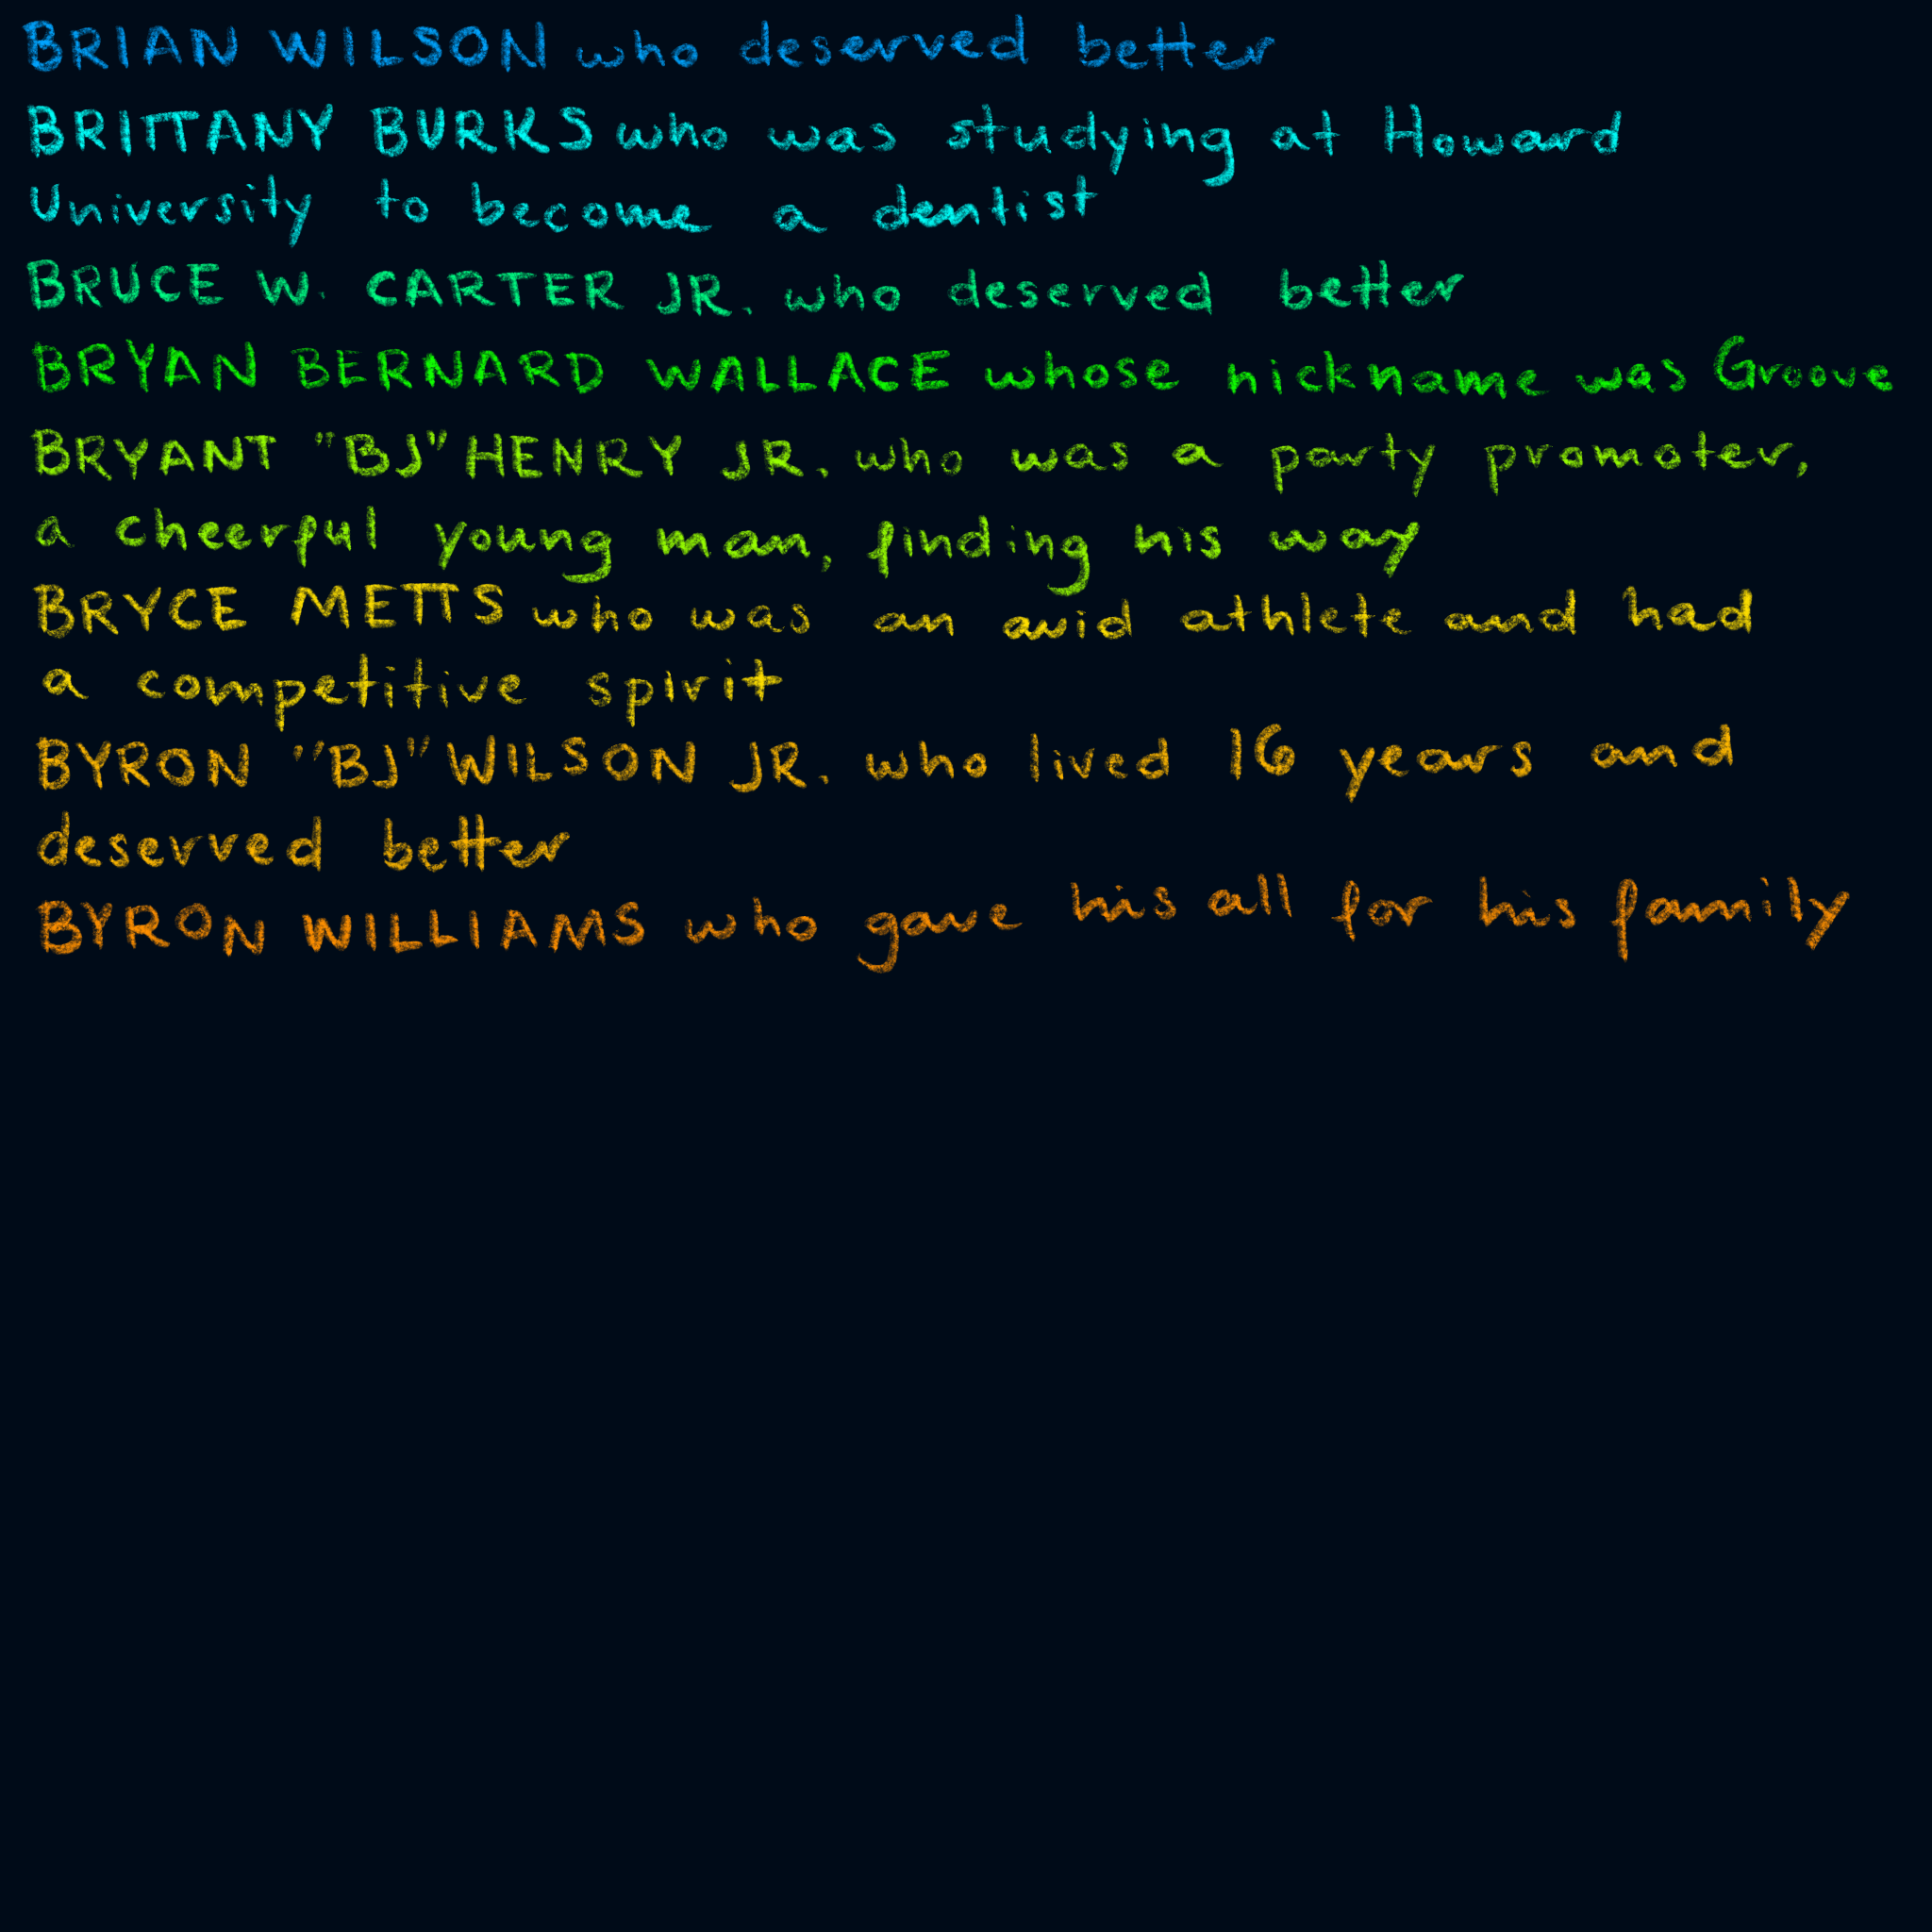 BRIAN WILSON who deserved better
BRITTANY BURKS who was studying at Howard
University to become a dentist
BRUCE W. CARTER JR. who deserved better
BRYAN BERNARD WALLACE whose nickname was Groove
BRYANT "BJ" HENRY JR. who was a party promoter,
a cheerful young man, finding his way
BRYCE METTS who was an avid athlete and had
a competitive spirit
BYRON "BJ" WILSON JR. who lived 16 years and
deserved better
BYRON WILLIAMS who gave his all for his family